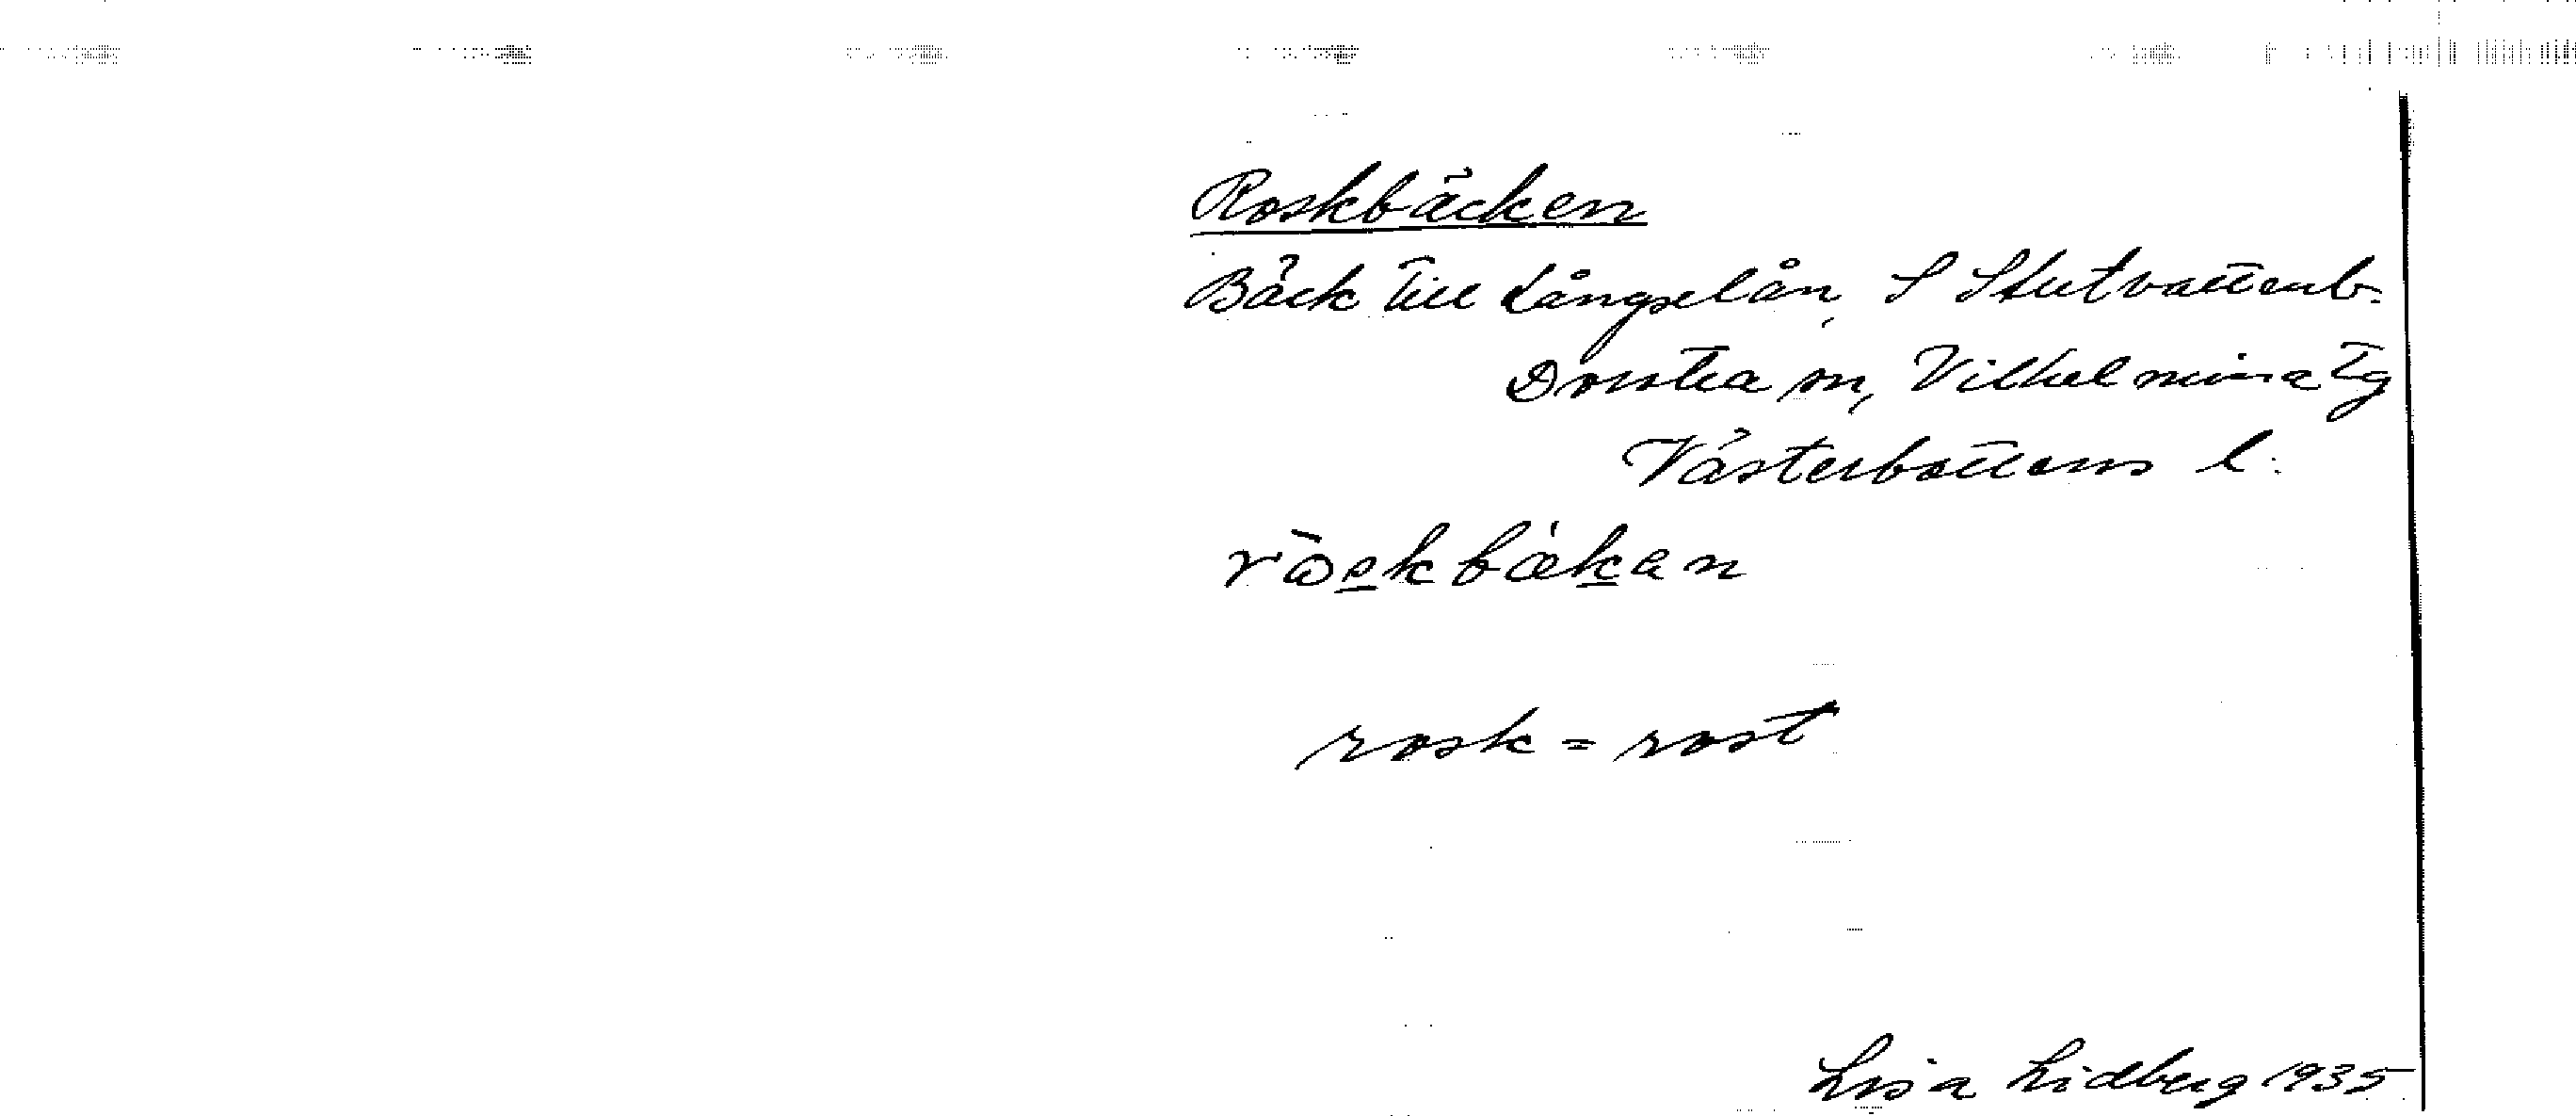 Roskbäcken
Bäck till Långselån, S Stutvattenb.
Dorotea sn, Vilhelmina tg
Västerbottens l.
ròskbǽkan
rosk = rost
Lisa Lidberg 1935